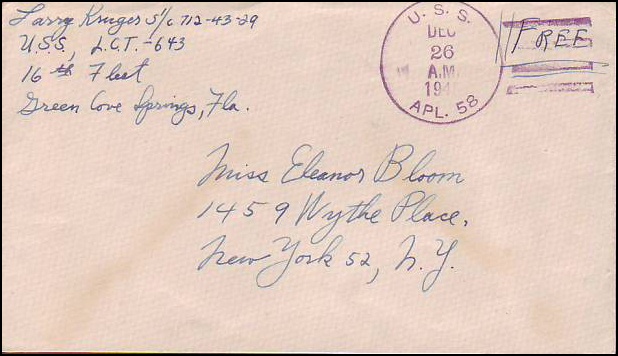 Larry Kruger S1/c 712-43-29
U.S.S. L.C.T.-643
16th Fleet
Green Cove Springs, Fla.
U. S. S.
DEC
26
A.M.
194
APL. 58
FREE
Miss Eleanor Bloom
1459 Wythe Place,
New York 52, N.Y.